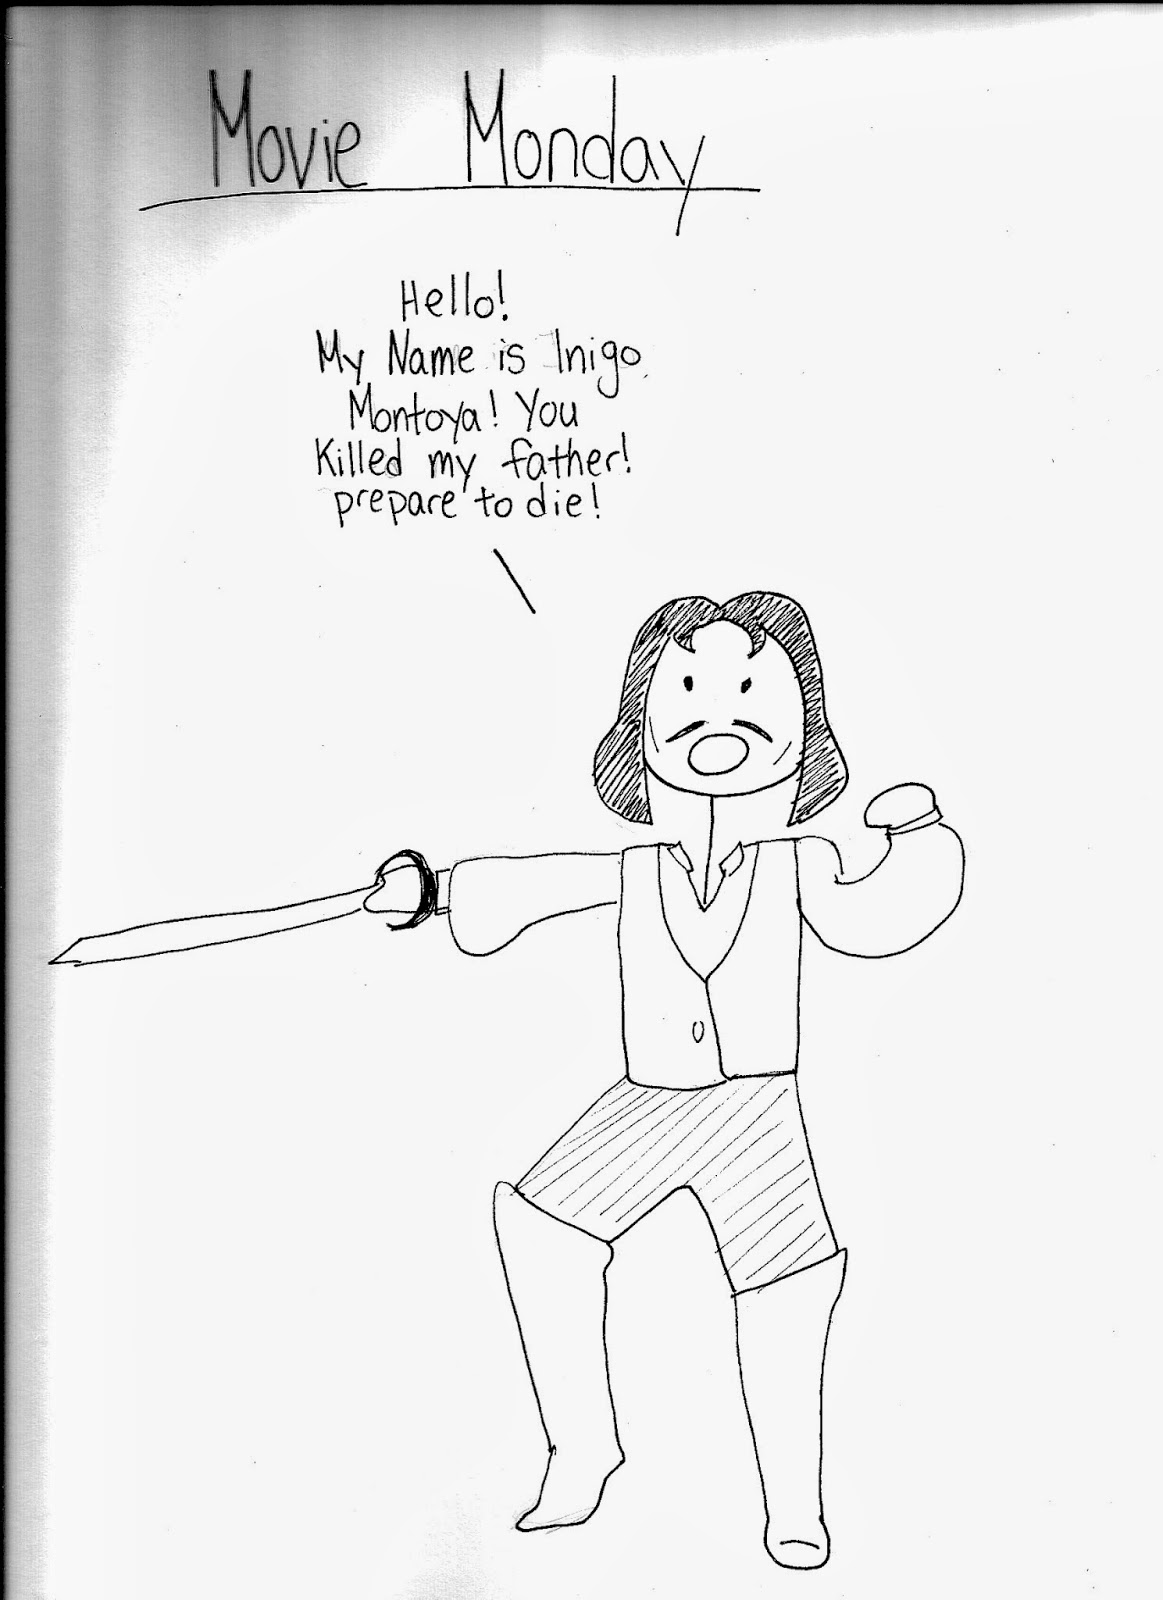 Movie Monday
Hello!
My Name is Inigo
Montoya! You
Killed my father!
prepare to die!